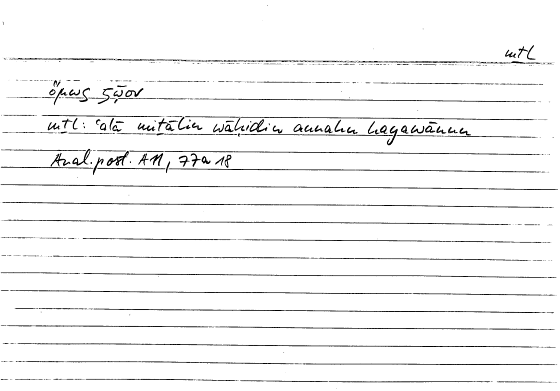 mtl
ὅμως ζῷον
mtl: ʿalā mitālin wāḥidin annahu hayawānun
Anal. post. A 11, 77a 18